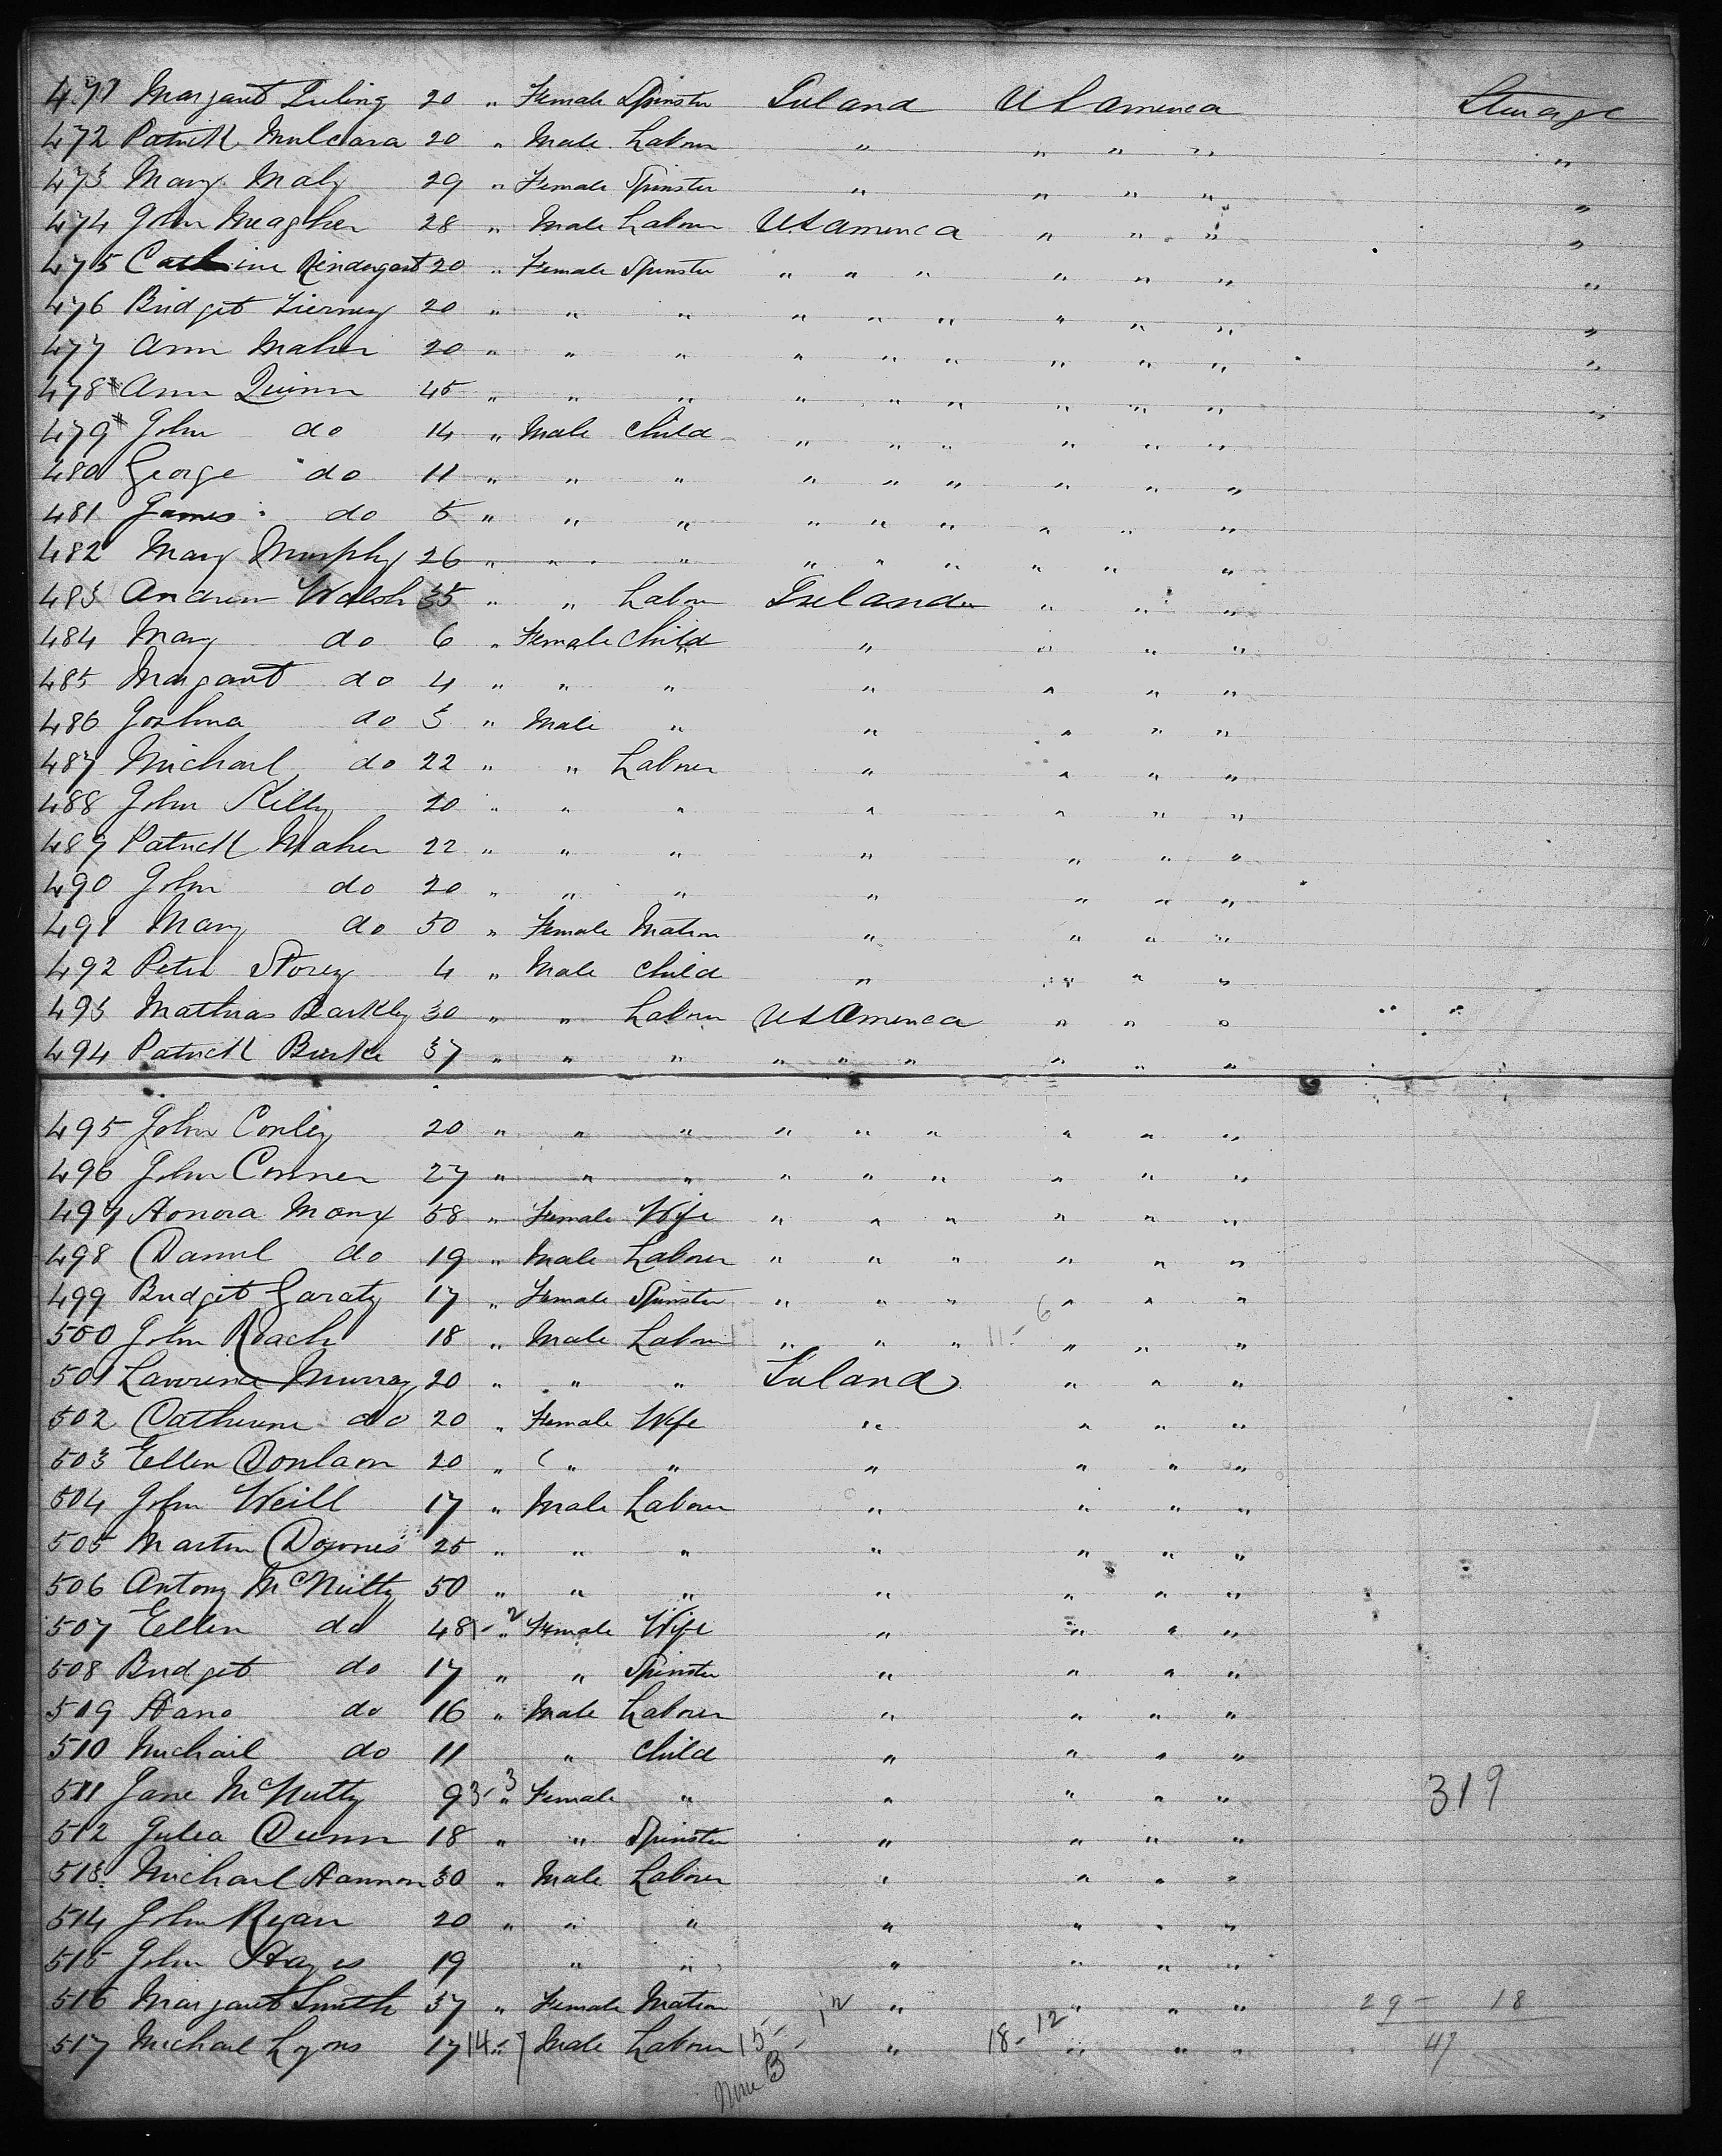 471 Margaret 20 " Female Spinster Ireland US America Steerage
472 Patrick Mulcara 20 " Male Labour " " " " "
473 Mary Maly 29 " Female Spinster " " " " "
474 John Meagher 28 " Male Labour US America " " " "
475 Catherine Pendergast 20 " Female Spinster " " " " " " "
476 Bridget Tierney 20 " " " " " " " " " "
477 Ann Maher 20 " " " " " " " " " "
478 Ann Quinn 45 " " " " " " " " " "
479 John do 14 " Male Child " " " " " "
480 George do 11 " " " " " " " " "
481 James do 5 " " " " " " " " "
482 Mary Murphy 26 " " " " " " " " "
483 Andrew Walsh 35 " " Labour Ireland " " "
484 Mary do 6 " Female Child " " " "
485 Margaret do 4 " " " " " " "
486 Joshua do 3 " Male " " " " "
487 Michael do 22 " " Labour " " " "
488 John Kelly 20 " " " " " " "
489 Patrick Maher 22 " " " " " " "
490 John do 20 " " " " " " "
491 Mary do 50 " Female Matron " " " "
492 Peter Storey 4 " Male Child " " " "
493 Mathias Barkley 30 " " Labour US America " " "
494 Patrick Burke 37 " " " " " " " " "
495 John Conley 20 " " " " " " " " "
496 John Conner 27 " " " " " " " " "
497 Honora Mony 58 " Female Wife " " " " " "
498 Daniel do 19 " Male Labour " " " " " "
499 Bridget Garaty 17 " Female Spinster " " " 6 " " "
500 John Roach 18 " Male Labour " " " 11 - " " "
501 Lawrence Murray 20 " " " Ireland " " "
502 Catherine do 20 " Female Wife " " " "
503 Ellen Donlam 20 " " " " " " "
504 John Weill 17 " Male Labour " " " "
505 Martin Downes 25 " " " " " " "
506 Antony McNulty 50 " " " " " " "
507 Ellen do 48 1-2 " Female Wife " " " "
508 Bridget do 17 " " Spinster " " " "
509 do 16 " Male Labour " " " "
510 Michail do 11 " Child " " " "
511 Jane McNutty 9 3-3 " Female " " " " " 319
512 Julia Dunn 18 " " Spinster " " " "
513 Michael Hannon 30 " Male Labour " " " "
514 John Ryan 20 " " " " " " "
515 John Hayes 19 " " " " " "
516 Margaret Smith 37 " Female Matron " " " " 29 - 18
517 Michael Lyons 17 14-7 " Male Labour 15 - 12 " 18-12 " " " 47
B